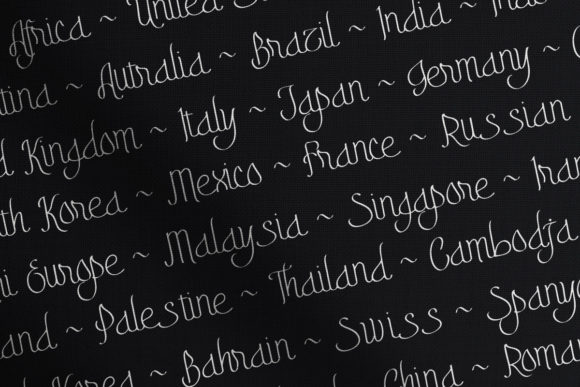 Africa ~ United S
tina ~ Autralia ~ Brazil ~ India ~
d Kingdom ~ Italy ~ Japan ~ Germany ~
th Korea ~ Mexico ~ France ~ Russian
i Europe ~ Malaysia ~ Singapore ~ Iran
and ~ Palestine ~ Thailand ~ Cambodja
Korea ~ Bahrain ~ Swiss ~ Spany
China ~ Roma